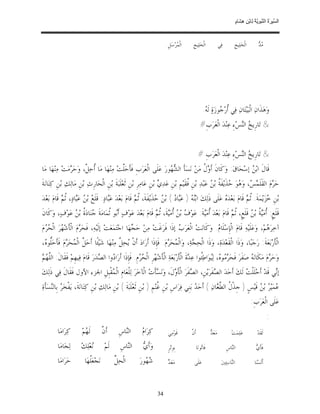 السّيرَة النّبَويّة لابْن هِشَام
مَدَّ الْخَلِيجِ فِي الْخَلِيجِ الْمُرْسَلِ
وَهَذَانِ الْبَيْتَانِ فِي أُرْجُوزَةٍ لَهُ
تَارِيخُ النَّسْءِ عِنْدَ الْعَرَبِ #
تَارِيخُ النَّسْءِ عِنْدَ الْعَرَبِ #
قَالَ ابْنُ إسْحَاقَ: وَكَانَ أَوَّلُ مَنْ نَسَأَ الشُّهُورَ عَلَى الْعَرَبِ فَأَحَلَّتْ مِنْهَا مَا أَحَلَّ، وَحَرَّمَتْ مِنْهَا مَا
حَرَّمَ الْقَلَمَّسُ، وَهُوَ حُذَيْفَةُ بْنُ عَبْدِ بْنِ فُقَيْمِ بْنِ عَدِيِّ بْنِ عَامِرِ بْنِ ثَعْلَبَةَ بْنِ الْحَارِثِ بْنِ مَالِكِ بْنِ كِنَانَةَ
بْنِ خُزَيْمَةَ. ثُمَّ قَامَ بَعْدَهُ عَلَى ذَلِكَ ابْنُهُ ( عَبَّادُ ) بْنُ حُذَيْفَةَ، ثُمَّ قَامَ بَعْدَ عَبَّادٍ: قَلَعُ بْنُ عَبَّادٍ، ثُمَّ قَامَ بَعْدَ
قَلَعٍ: أُمَيَّةُ بْنُ قَلَعٍ، ثُمَّ قَامَ بَعْدَ أُمَيَّةَ: عَوْفُ بْنُ أُمَيَّةَ، ثُمَّ قَامَ بَعْدَ عَوْفٍ أَبُو ثُمَامَةَ جُنَادَةُ بْنُ عَوْفٍ، وَكَانَ
آخِرَهُمْ، وَعَلَيْهِ قَامَ الْإِسْلَامُ. وَكَانَتْ الْعَرَبُ إذَا فَرَغَتْ مِنْ حَجِّهَا اجْتَمَعَتْ إلَيْهِ، فَحَرَّمَ الْأَشْهُرَ الْحُرُمَ
الْأَرْبَعَةَ: رَجَبًا، وَذَا الْقَعْدَةِ، وَذَا الْحِجَّةِ، وَالْمُحَرَّمَ. فَإِذَا أَرَادَ أَنْ يُحِلَّ مِنْهَا شَيْئًا أَحَلَّ الْمُحَرَّمَ فَأَحَلُّوهُ،
وَحَرَّمَ مَكَانَهُ صَفَرَ فَحَرَّمُوهُ، لِيُوَاطِئُوا عِدَّةَ الْأَرْبَعَةِ الْأَشْهُرِ الْحُرُمِ. فَإِذَا أَرَادُوا الصَّدَرَ قَامَ فِيهِمْ فَقَالَ: اللَّهُمَّ
إنِّي قَدْ أَحْلَلْتُ لَكَ أَحَدَ الصَّفَرَيْنِ، الصَّفَرَ الْأَوَّلَ، وَنَسَّأْتُ الْآخَرَ لِلْعَامِ الْمُقْبِلِ الجزء الأول فَقَالَ فِي ذَلِكَ
عُمَيْرُ بْنُ قَيْسٍ ( جَذْلُ الطَّعَانِ ) أَحَدُ بَنِي فِرَاسِ بْنِ غَنْمِ ( بْنِ ثَعْلَبَةَ ) بْنِ مَالِكِ بْنِ كِنَانَةَ، يَفْخَرُ بِالنَّسَأَةِ
عَلَى الْعَرَبِ:
لَقَدْ عَلِمَتْ مَعَدٌّ أَنَّ قَوْمِي كِرَامُ النَّاسِ أَنَّ لَهُمْ كِرَامَا
فَأَيُّ النَّاسِ فَاتُونَا بِوِتْرٍ وَأَيُّ النَّاسِ لَمْ نُعْلِكْ لِجَامَا
أَلَسْنَا النَّاسِئِينَ عَلَى مَعَدٍّ شُهُورَ الْحِلِّ نَجْعَلُهَا حَرَامَا
34